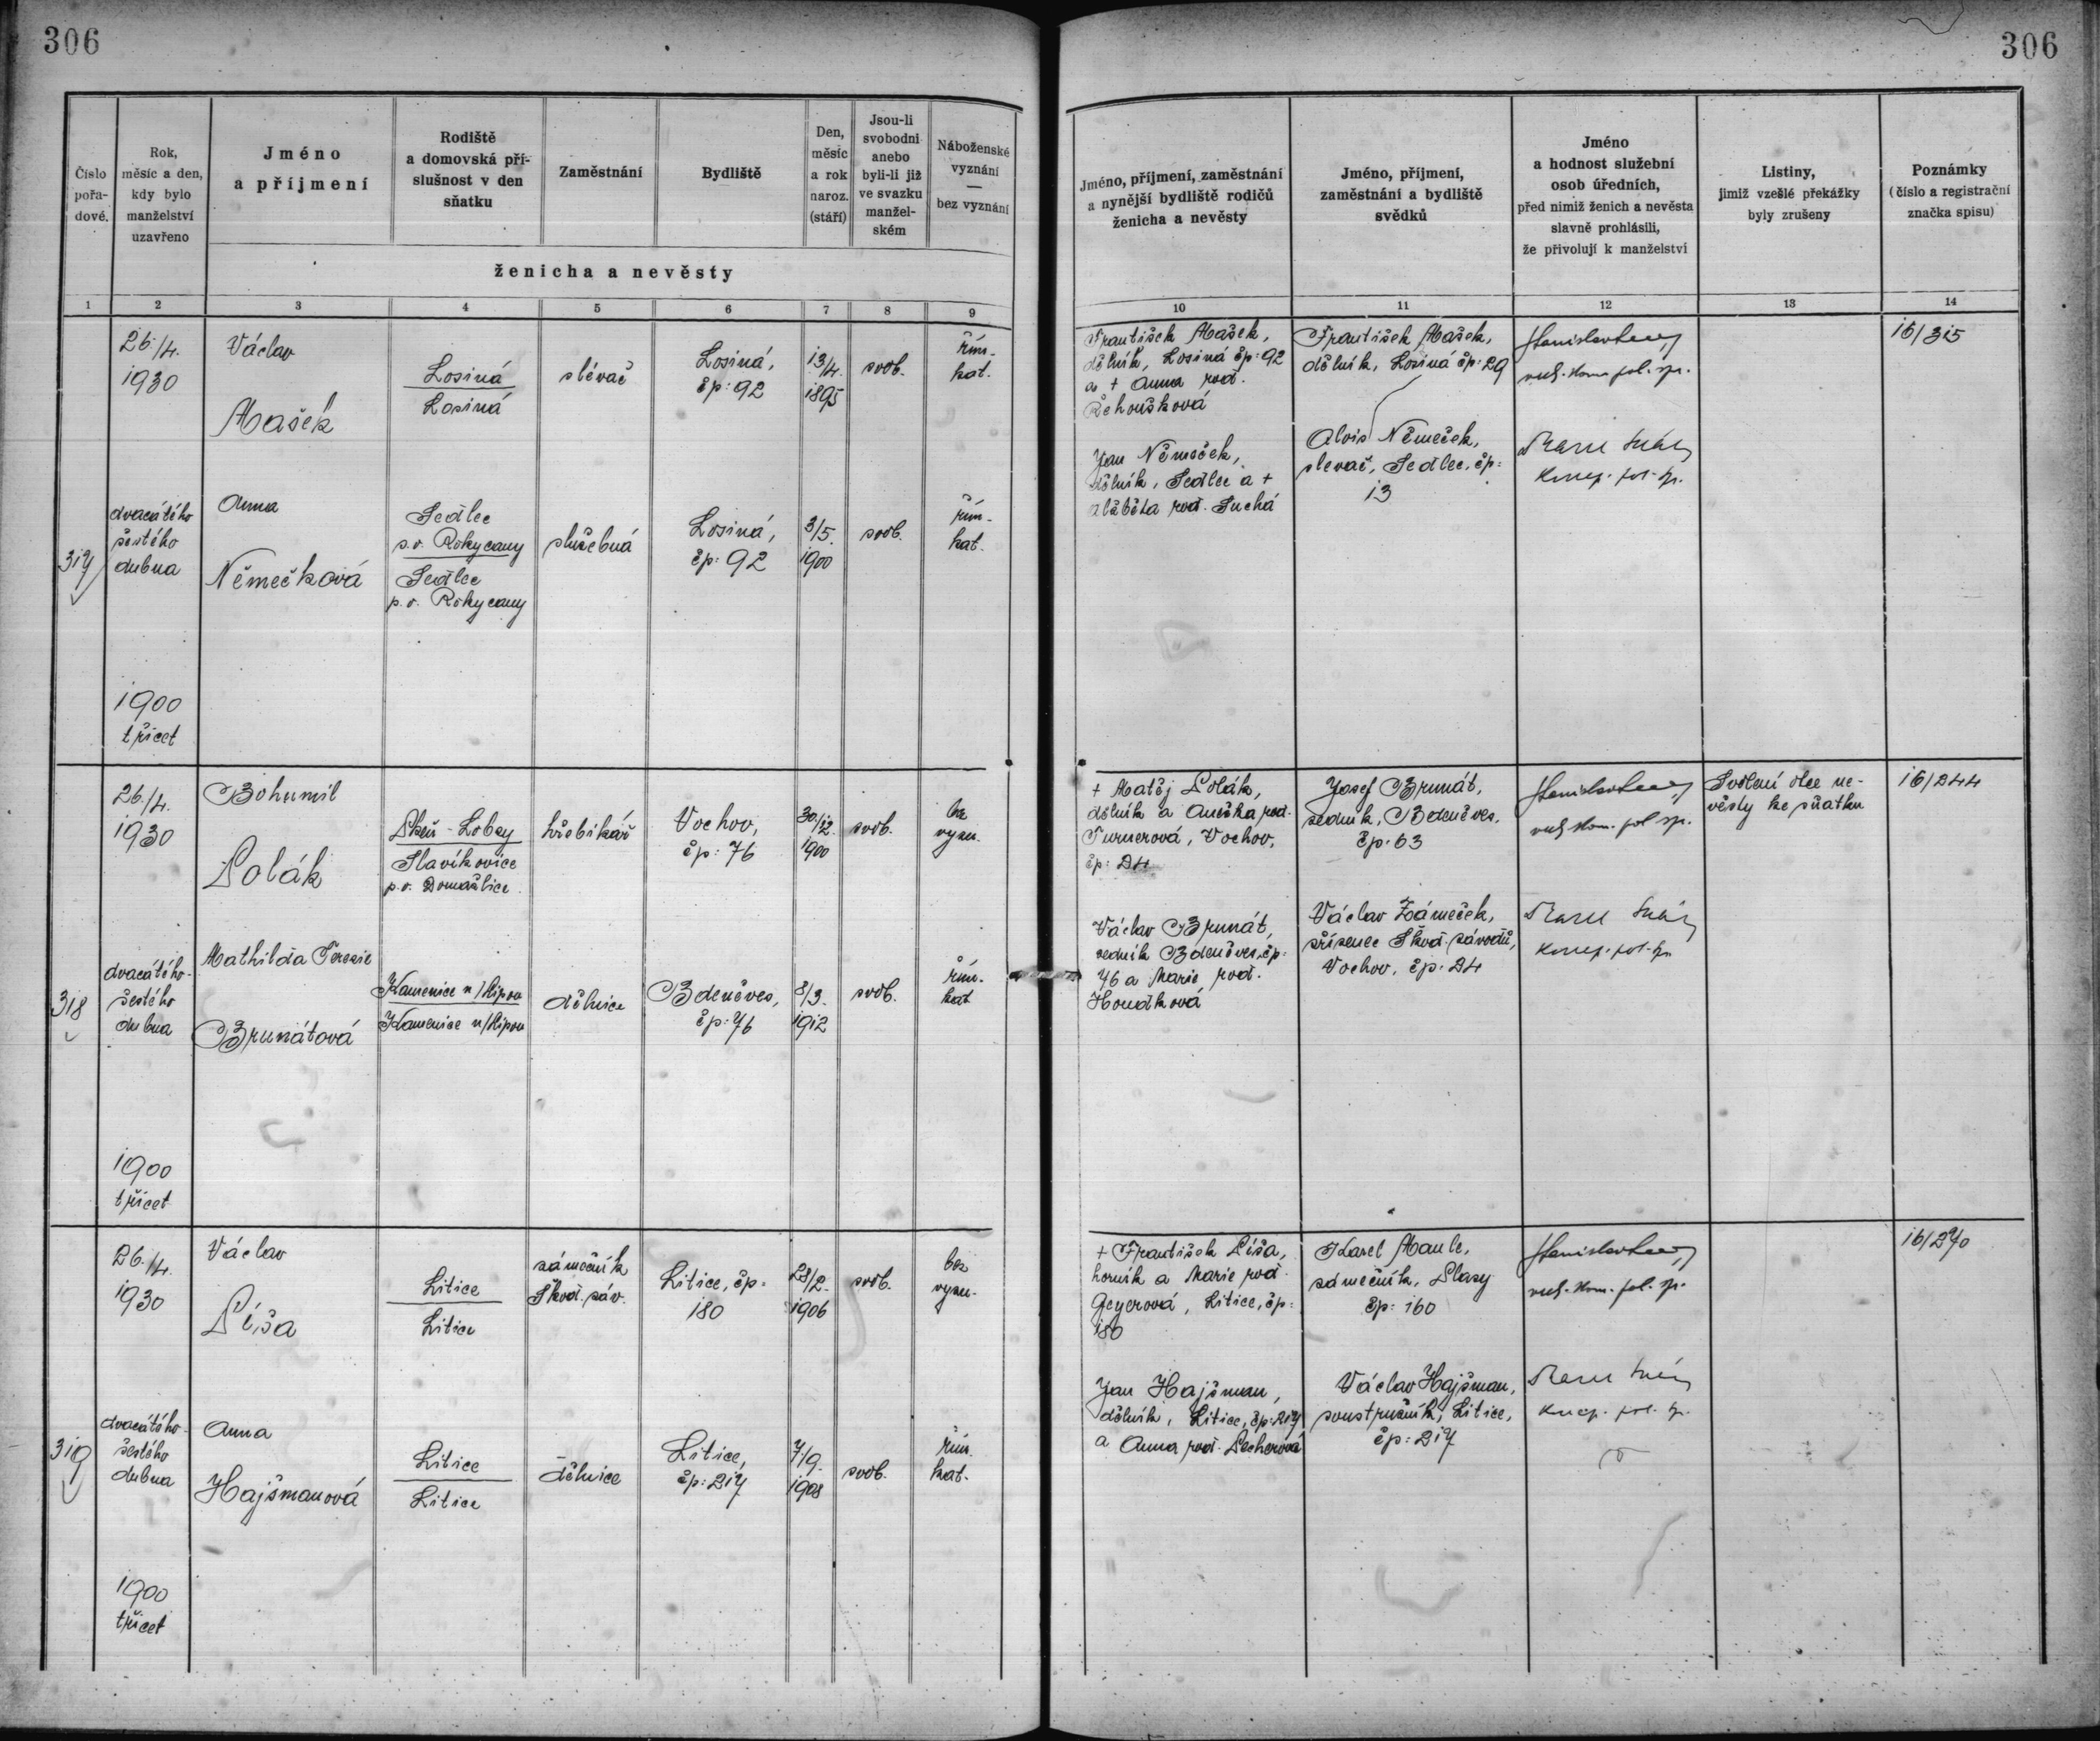 306
306
Číslo pořa- dové.
Rok, měsíc a den, kdy bylo manželství uzavřeno
Jméno a příjmení
Rodiště a domovská pří- slušnost v den sňatku
Zaměstnání
Bydliště
Den, měsíc a rok naroz. (stáří)
Jsou-li svobodni anebo byli-li již ve svazku manžel- ském
Náboženské vyznání — bez vyznání
ženicha a nevěsty
Jméno, příjmení, zaměstnání a nynější bydliště rodičů ženicha a nevěsty
Jméno, příjmení, zaměstnání a bydliště svědků
Jméno a hodnost služební osob úředních, před nimiž ženich a nevěsta slavně prohlásili, že přivolují k manželství
Listiny, jimiž vzešlé překážky byly zrušeny
Poznámky (číslo a registrační značka spisu)
1 2 3 4 5 6 7 8 9 10 11 12 13 14
317
26./4.
1930
dvacátého
šestého
dubna
1900
třicet
Václav
Mašek
Losiná
Losiná
slévač
Losiná,
čp: 92
13/4.
1895
svob.
řím.-
kat.
Anna
Němečková
Sedlec
p.o. Rokycany
Sedlec
p.o. Rokycany
služebná
Losiná,
čp: 92
3/5.
1900
svob.
řím.-
kat.
František Mašek,
dělník, Losiná čp: 92
a + Anna rod.
Řehoušková
Jan Němeček,
dělník, Sedlec a +
Alžběta rod. Suchá
František Mašek,
dělník, Losiná čp: 29
Alois Němeček,
slevač, Sedlec, čp:
13
16/315
318
26./4.
1930
dvacátého-
šestého
dubna
1900
třicet
Bohumil
Polák
Plzeň - Lobzy
Slavíkovice
p.o. Domažlice
hřebíkář
Vochov,
čp: 76
30/12.
1900
svob.
bez
vyzn.
Mathilda Terezie
Brunátová
Kamenice n/Lipou
Kamenice n/Lipou
dělnice
Zdeněves,
čp: 76
8/3.
1912
svob.
řím.-
kat
+ Matěj Polák,
dělník a Anežka rod.
Turnerová, Vochov,
čp: 24
Václav Brunát,
zedník Zdeněves, čp:
76 a Marie rod.
Houdková
Josef Brunát,
zedník, Zdeněves,
čp: 63
Václav Zámeček,
zřízenec Škod. závodů,
Vochov, čp: 24
Svolení otce ne-
věsty ke sňatku
16/244
319
26./4.
1930
dvacátého-
šestého
dubna
1900
třicet
Václav
Líša
Litice
Litice
zámečník
Škod. záv.
Litice, čp:
180
28/2.
1906
svob.
bez
vyzn.
Anna
Hajšmanová
Litice
Litice
dělnice
Litice,
čp: 217
7/9.
1908
svob.
řím.
kat.
+ František Líša,
horník a Marie rod.
Geyerová, Litice, čp:
180
Jan Hajšman,
dělník, Litice, čp: 217
a Anna rod. Pecherová
Karel Maule,
zámečník, Plasy
čp: 160
Václav Hajšman,
soustružník, Litice,
čp: 217
16/270